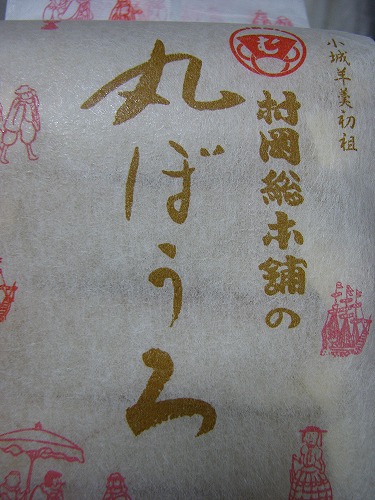 小城羊羹初祖
村岡総本舗の
丸ぼうろ